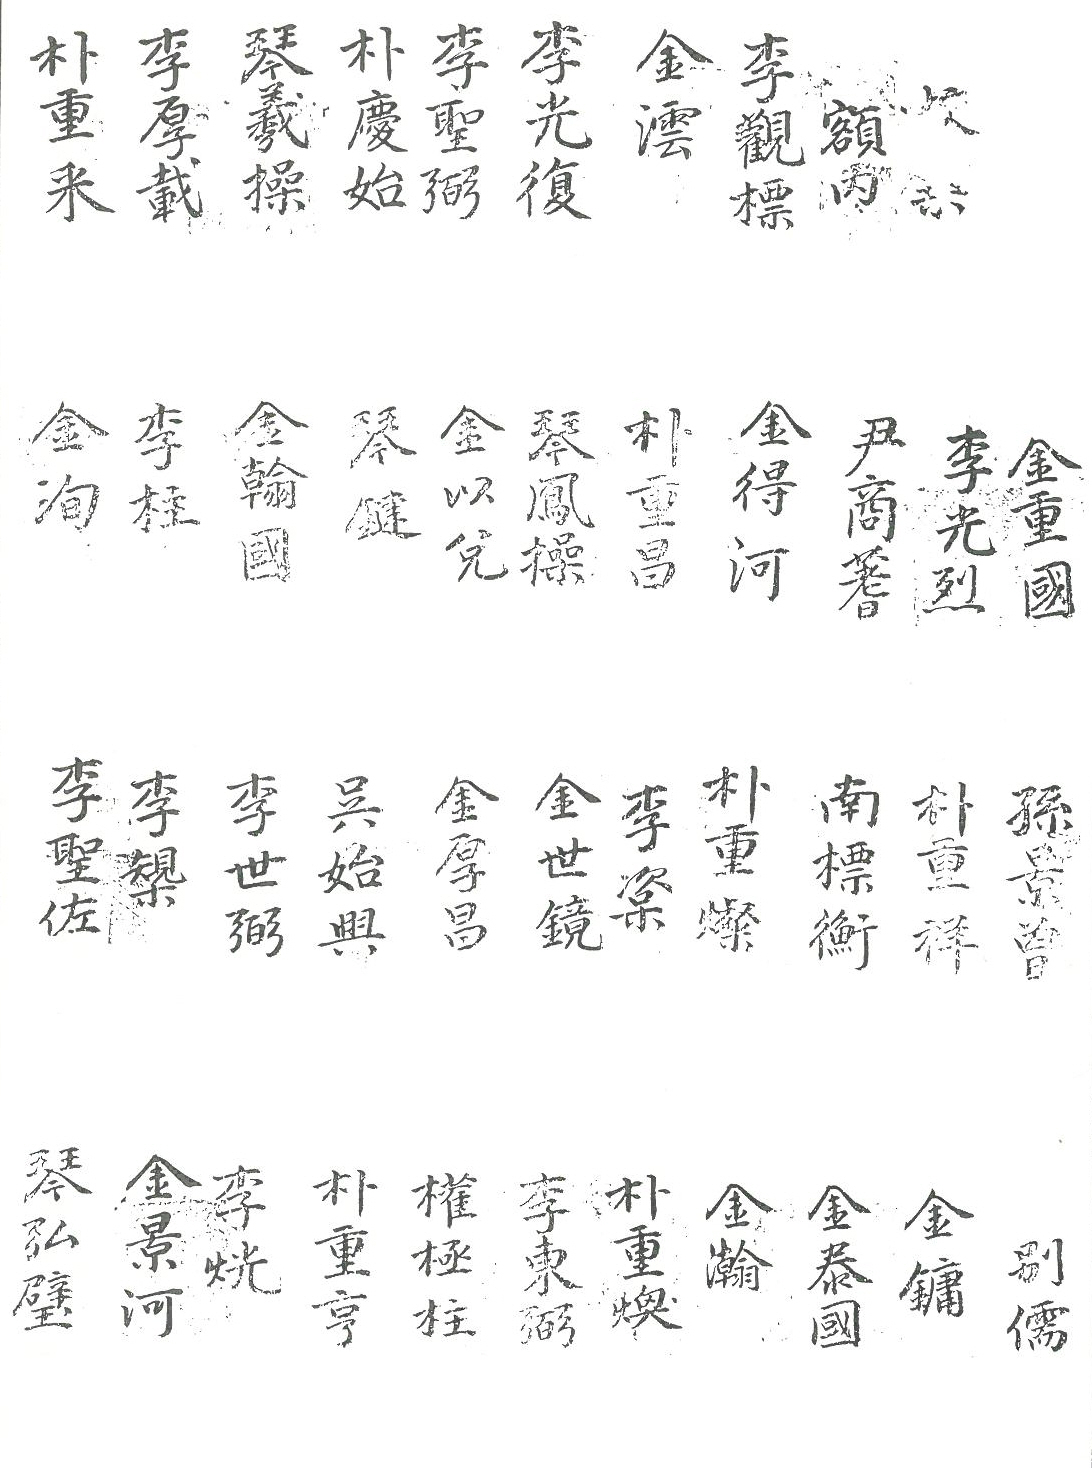 額內
李觀標
金澐
李光復
李聖弼
朴慶始
琴羲操
李厚載
朴重采
金重國
李光烈
尹商蓍
金得河
朴重昌
琴鳳操
金以兌
琴鍵
金翰國
李桎
金洵
孫景曾
朴重祥
南標衡
朴重燦
李楶
金世鏡
金厚昌
吳始興
李世弼
李槼
李聖佐
別儒
金鏞
金泰國
金瀚
朴重煥
李東弼
權極柱
朴重亨
李烑
金景河
琴弘璧